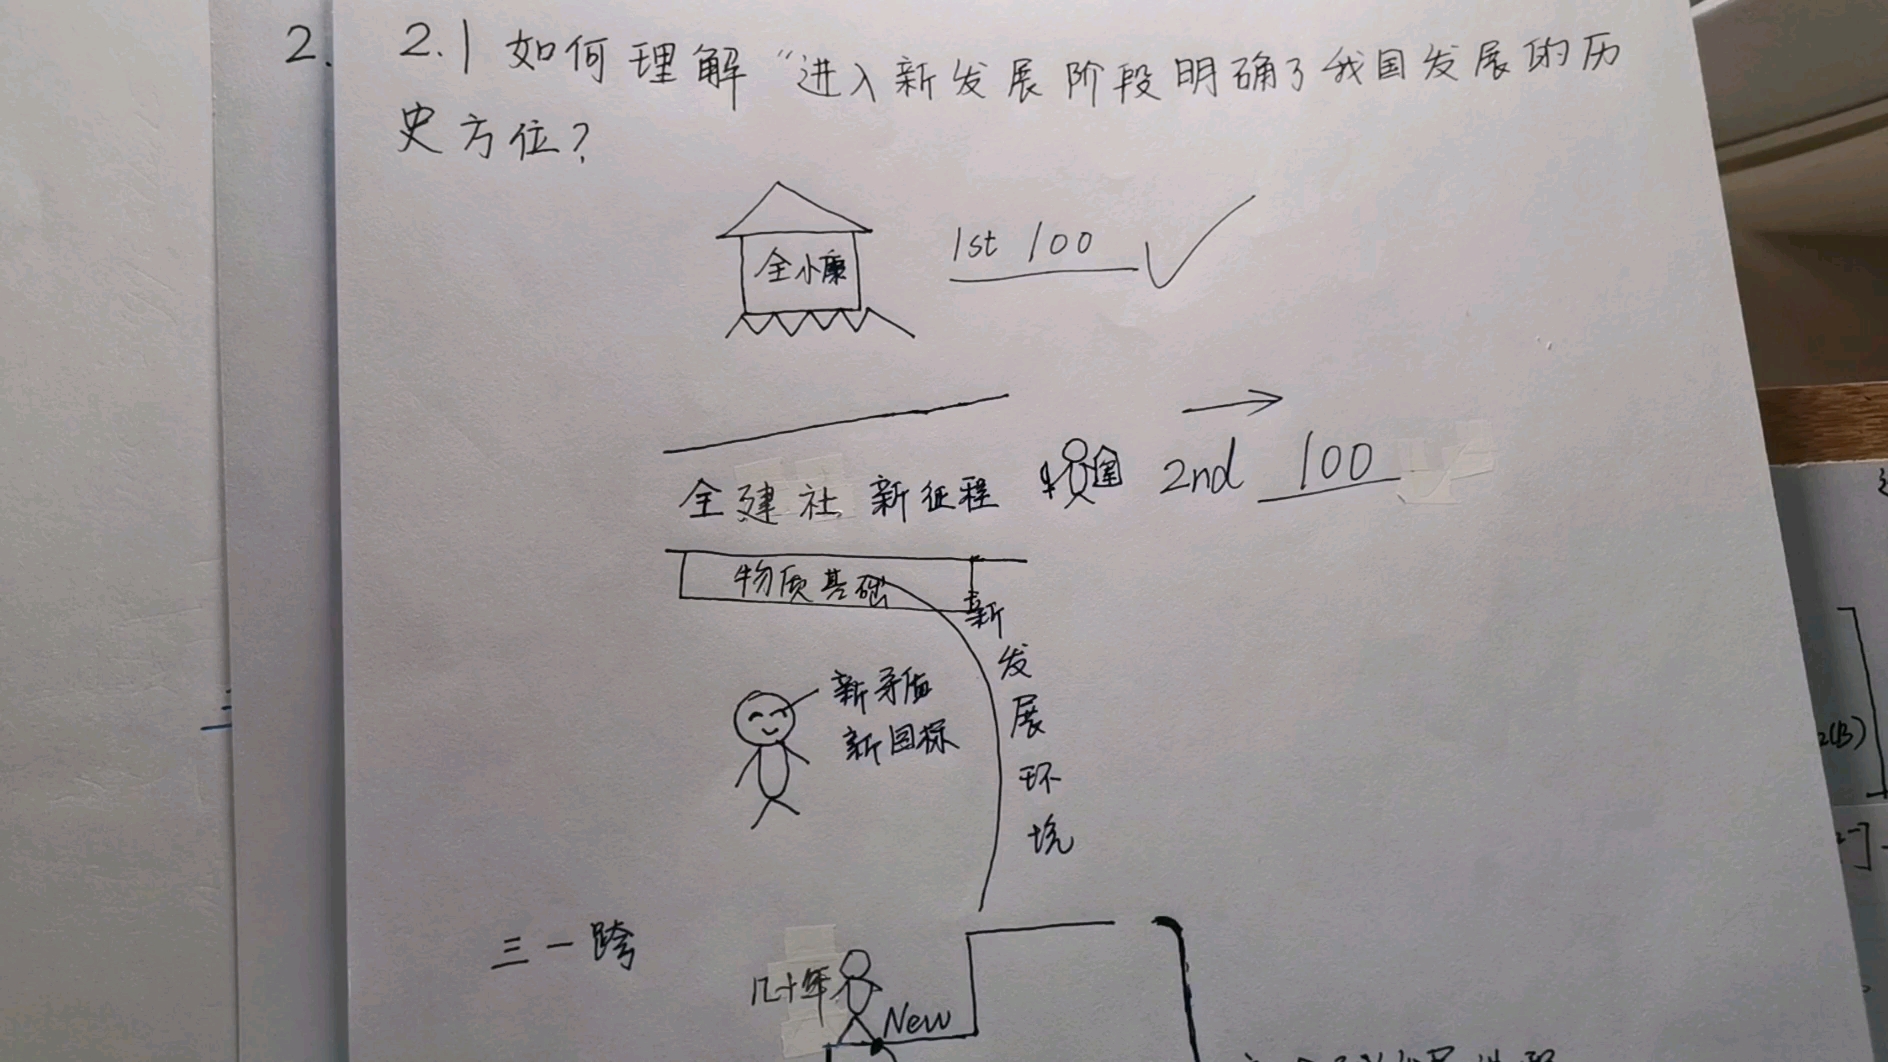 2.
2.1 如何理解“进入新发展阶段明确了我国发展的历
史方位?
全小康
1st 100
全建社 新征程
2nd 100
物质基础
新发展环境
新矛盾
新目标
三一跨
几十年
New
2(B)